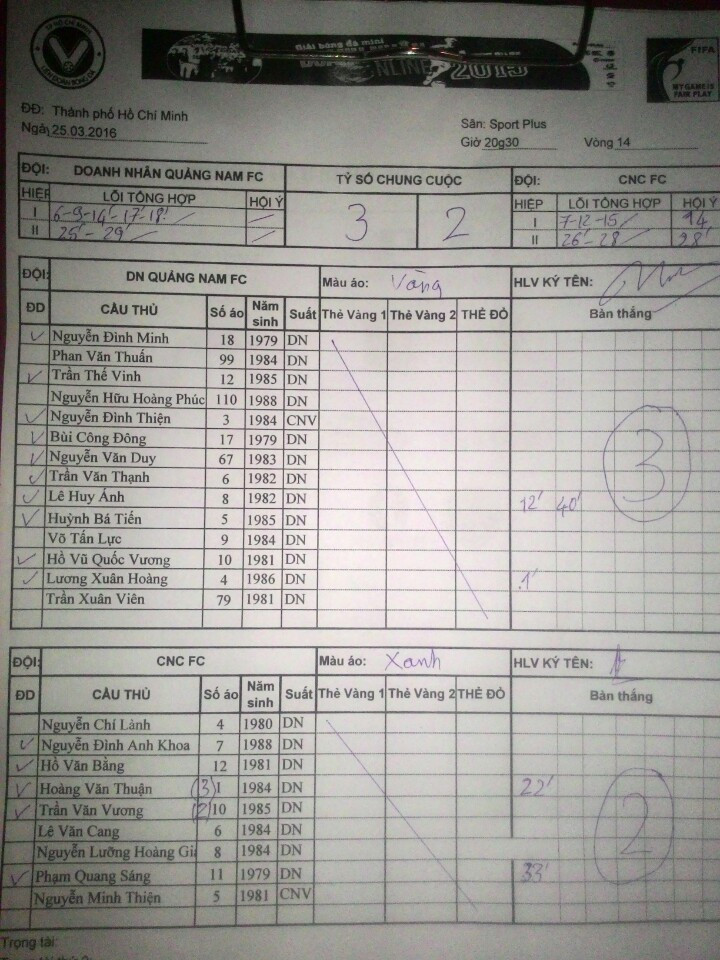 TP HỒ CHÍ MINH
LIÊN ĐOÀN BÓNG ĐÁ
Giải bóng đá mini
ONLINE 2015
FIFA
MY GAME IS
FAIR PLAY
ĐĐ: Thành phố Hồ Chí Minh
Ngày 25.03.2016
Sân: Sport Plus
Giờ 20g30 Vòng 14
ĐỘI: DOANH NHÂN QUẢNG NAM FC TỶ SỐ CHUNG CUỘC ĐỘI: CNC FC
HIỆP LỖI TỔNG HỢP HỘI Ý 3 2 HIỆP LỖI TỔNG HỢP HỘI Ý
I 6-9-14'-17'-18' I 7-12-15 14
II 25'-29' II 26'-28 28'
ĐỘI: DN QUẢNG NAM FC Màu áo: Vàng HLV KÝ TÊN:
ĐD CẦU THỦ Số áo Năm sinh Suất Thẻ Vàng 1 Thẻ Vàng 2 THẺ ĐỎ Bàn thắng
Nguyễn Đình Minh 18 1979 DN
Phan Văn Thuấn 99 1984 DN
Trần Thế Vinh 12 1985 DN
Nguyễn Hữu Hoàng Phúc 110 1988 DN
Nguyễn Đình Thiện 3 1984 CNV
Bùi Công Đông 17 1979 DN
Nguyễn Văn Duy 67 1983 DN 3
Trần Văn Thạnh 6 1982 DN
Lê Huy Ánh 8 1982 DN 12' 40'
Huỳnh Bá Tiến 5 1985 DN
Võ Tấn Lực 9 1984 DN
Hồ Vũ Quốc Vương 10 1981 DN
Lương Xuân Hoàng 4 1986 DN 1'
Trần Xuân Viên 79 1981 DN
ĐỘI: CNC FC Màu áo: Xanh HLV KÝ TÊN:
ĐD CẦU THỦ Số áo Năm sinh Suất Thẻ Vàng 1 Thẻ Vàng 2 THẺ ĐỎ Bàn thắng
Nguyễn Chí Lành 4 1980 DN
Nguyễn Đình Anh Khoa 7 1988 DN
Hồ Văn Bằng 12 1981 DN
Hoàng Văn Thuận (3) 1 1984 DN 22'
Trần Văn Vương (2) 10 1985 DN
Lê Văn Cang 6 1984 DN 2
Nguyễn Lưỡng Hoàng Gia 8 1984 DN
Phạm Quang Sáng 11 1979 DN 33'
Nguyễn Minh Thiện 5 1981 CNV
Trọng tài: